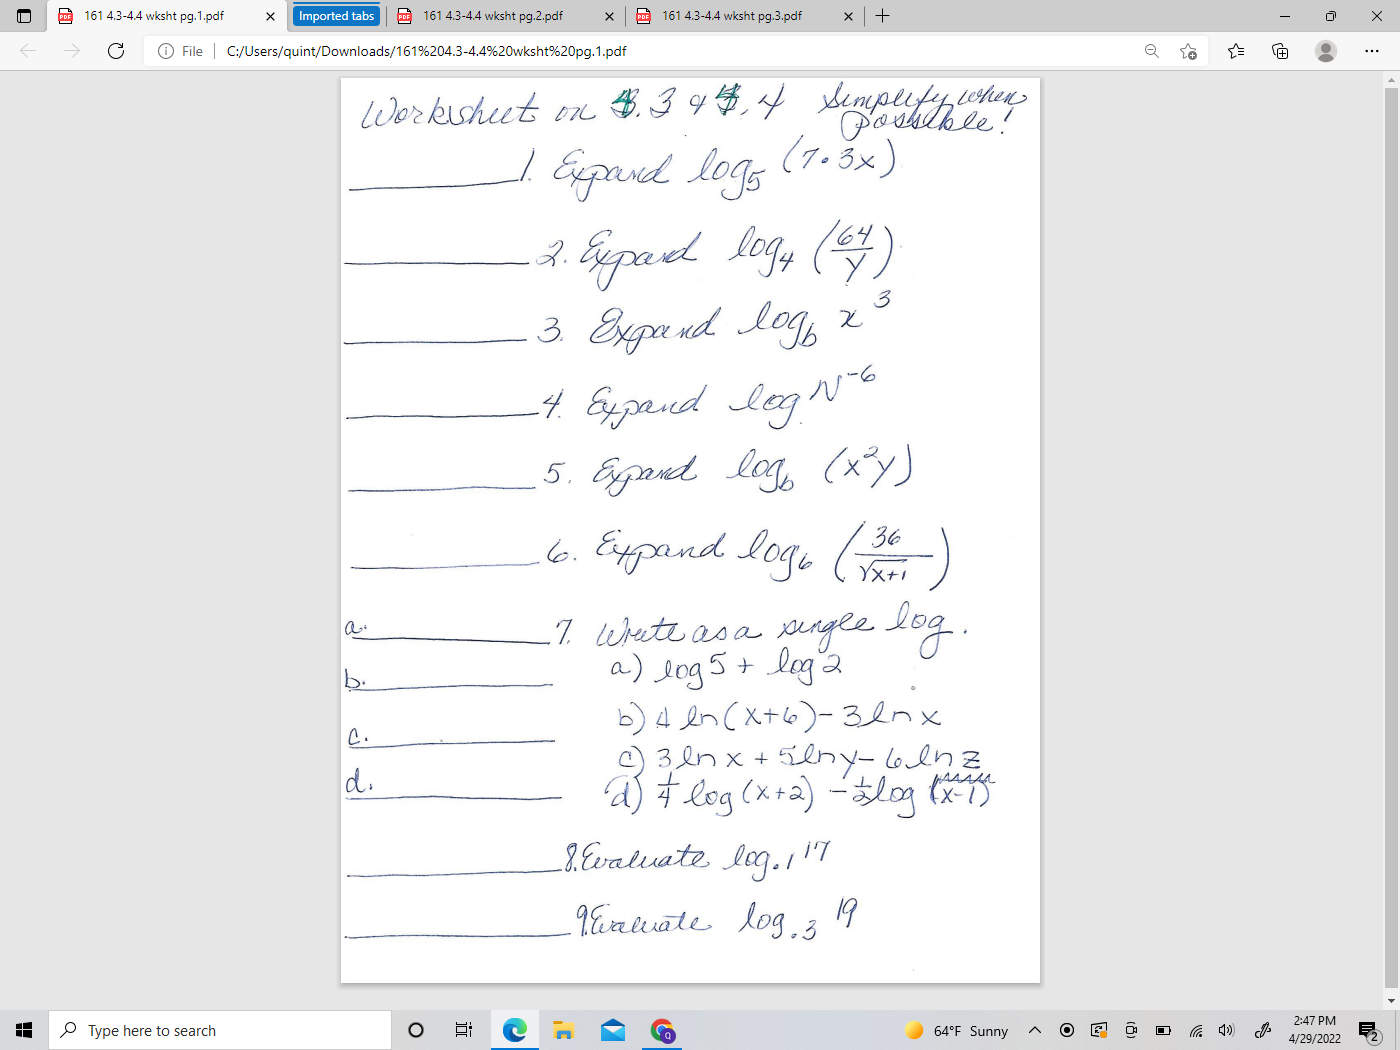 161 4.3-4.4 wksht pg.1.pdf
Imported tabs
161 4.3-4.4 wksht pg.2.pdf
161 4.3-4.4 wksht pg.3.pdf
File
C:/Users/quint/Downloads/161%204.3-4.4%20wksht%20pg.1.pdf
Worksheet on 4.3 & 4.4 Simplify when
possible!
1. Expand log₅ (7·3x)
2. Expand log₄ (64/y)
3. Expand log_b x³
4. Expand log N⁻⁶
5. Expand log_b (x²y)
6. Expand log₆ (36/√x+1)
a. 7. Write as a single log.
a) log 5 + log 2
b.
b) 4 ln(x+6) - 3 ln x
c.
c) 3 ln x + 5 ln y - 6 ln z
d.
d) 1/4 log (x+2) - 1/2 log (x-1)
8. Evaluate log.₁ 17
9. Evaluate log.₃ 19
Type here to search
64°F Sunny
2:47 PM
4/29/2022
2